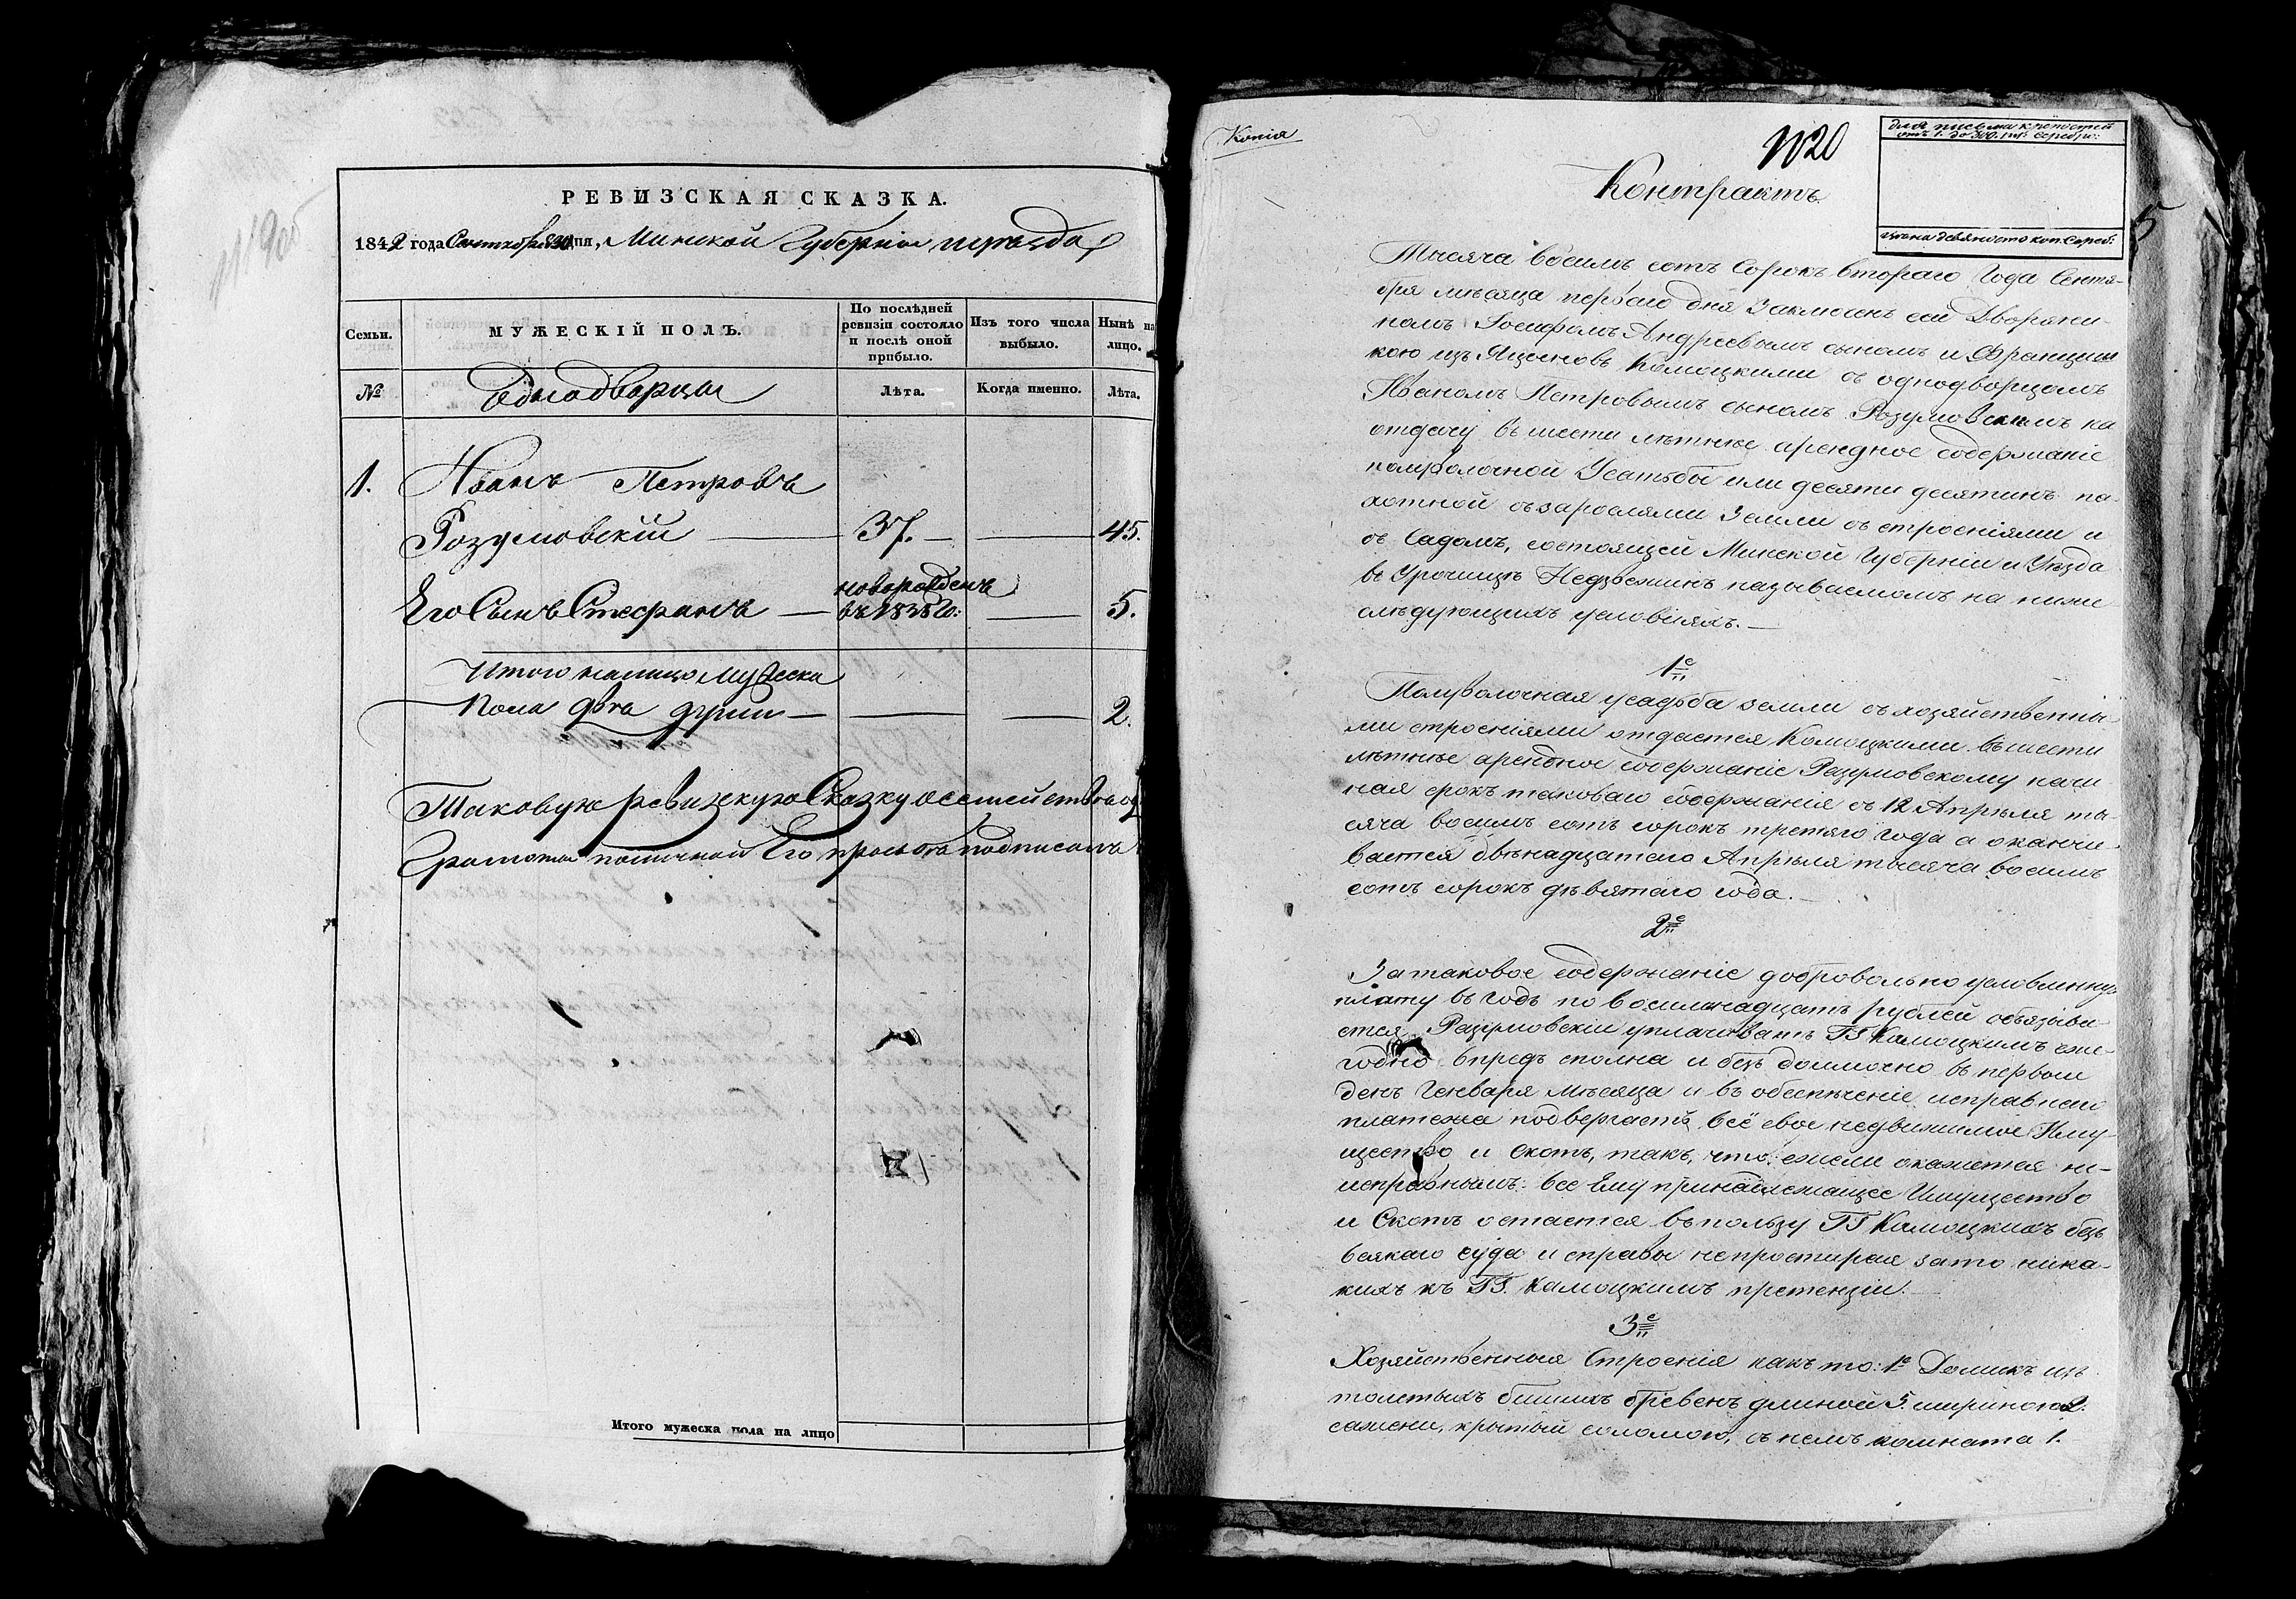 РЕВИЗСКАЯ СКАЗКА.
1842 года Сентября 30 дня, Минской Губернии и уезда
Семьи.
МУЖЕСКІЙ ПОЛЪ.
По послѣдней ревизіи состояло и послѣ оной прибыло.
Изъ того числа выбыло.
Нынѣ на лицо.
№
Однодворцы
Лѣта.
Когда именно.
Лѣта.
1. Иванъ Петровъ
Розумовскій 37. 45.
Его Сынъ Стефанъ новорожденъ въ 1838 го: 5.
Итого налицо мужеска
пола два души 2.
Таковую ревизкую Сказку о семействе
Грамоты по личной Его просьбе подписалъ
Итого мужеска пола на лицо
Копія
N 20
для письма крѣпостей
отъ 1. до 300. руб: серебр:
цѣна девяносто коп. Сереб:
5
Контрактъ
Тысяча восимъ сотъ Сорокъ втораго Года Сентя-
бря мѣсяца перваго дня Заключенъ сей Дворяни-
номъ Іосифомъ Андреевымъ сыномъ и Францыш
кою изъ Яценовъ Камоцкими съ однодворцомъ
Иваномъ Петровымъ сыномъ Розумовскимъ на
отдачу въ шести лѣтнѣе арендное содержаніе
полуволочной Усатьбы или десяти десятинъ па-
хотной съ зарослями Земли съ строеніями и
съ Садомъ, состоящей Минской Губерніи и Уѣзда
въ Урочищѣ называемомъ на ниже
слѣдующихъ условіяхъ.
1е
Полуволочная усадьба земли съ хозяйственны-
ми строеніями отдается Камоцкими въ шести
лѣтнѣе арендное содержаніе Разумовскому начи
ная срокъ таковаго содержанія съ 12 Апрѣля ты-
сяча восимъ сотъ сорокъ третяго года а оканчи-
вается двѣнадцатаго Апрѣля тысяча восимъ
сотъ сорокъ дѣвятаго года.
2е
За таковое содержаніе добровольно условленную
плату въ годъ по восимнадцать рублей обязыва-
ется Разумовскій уплачивать ГГ Камоцкимъ еже-
годно впредъ сполна и безъ доимочно въ первый
день Генваря Мѣсяца и въ обеспѣченіе исправнаго
платежа подвергаетъ всё свое недвижимое Иму-
щество и Скотъ, такъ, что ежели окажется не-
исправнымъ: все Ему принадлежащее Имущество
и Скотъ остается въ пользу ГГ Камоцкихъ безъ
всякаго суда и справы непростирая зато ника-
кихъ къ ГГ. Камоцкимъ претензіи.
3е
Хозяйственныя Строенія какъ то: 1е Домикъ изъ
толстыхъ бревенъ длиной 5. шириною 2.
сажени, крытый соломою, въ немъ комната 1.